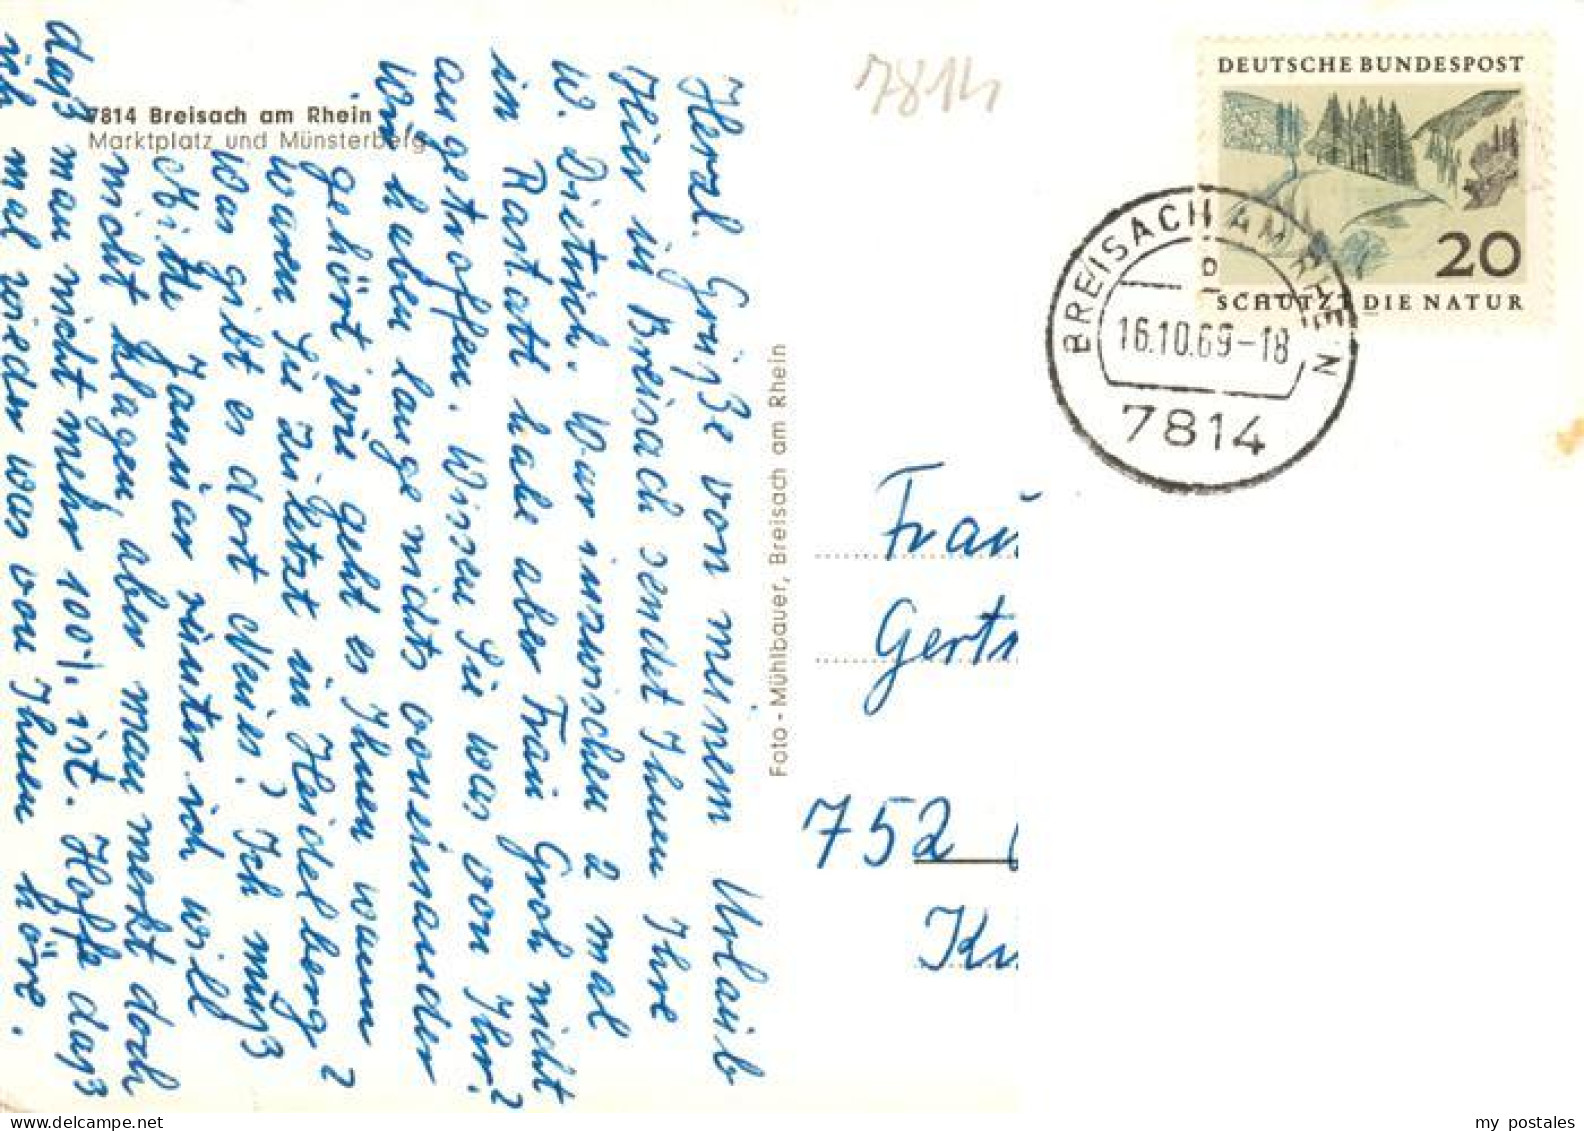 7814 Breisach am Rhein
Marktplatz und Münsterberg
Herzl. Grüße von meinem Urlaub
Hier in Breisach sendet Ihnen Ihre
W. Dietrich. War inzwischen 2 mal
in Rastatt habe aber Frau Groh nicht
angetroffen. Wissen Sie was von Ihr?
Wir haben lange nichts voneinander
gehört wie geht es Ihnen wann
waren Sie zuletzt in Heidelberg?
Was gibt es dort Neues? Ich muß
Mitte Januar runter ich will
nicht klagen, aber man merkt doch
daß man nicht mehr 100% ist. Hoffe daß
ich mal wieder was von Ihnen höre.
Foto - Mühlbauer, Breisach am Rhein
7814
DEUTSCHE BUNDESPOST
20
SCHÜTZT DIE NATUR
BREISACH AM RHEIN
16.10.69-18
7814
Frau
Gertr
752
my postales